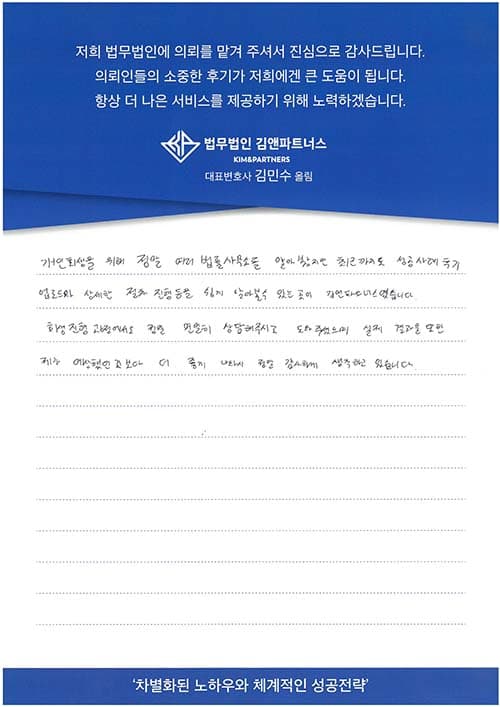 저희 법무법인에 의뢰를 맡겨 주셔서 진심으로 감사드립니다.
의뢰인들의 소중한 후기가 저희에겐 큰 도움이 됩니다.
항상 더 나은 서비스를 제공하기 위해 노력하겠습니다.
법무법인 김앤파트너스
KIM&PARTNERS
대표변호사 김민수 올림
개인회생을 위해 정말 여러 법률사무소를 알아봤지만 최근까지도 성공사례 후기
업로드와 상세한 절차 진행등을 쉽게 알아볼수 있는곳이 김앤파트너스였습니다
회생진행 과정에서도 정말 면밀히 상담해주시고 도와주셨으며 실제 결과물 또한
제가 예상했던것보다 더 좋게 나와서 정말 감사하게 생각하고 있습니다.
'차별화된 노하우와 체계적인 성공전략'